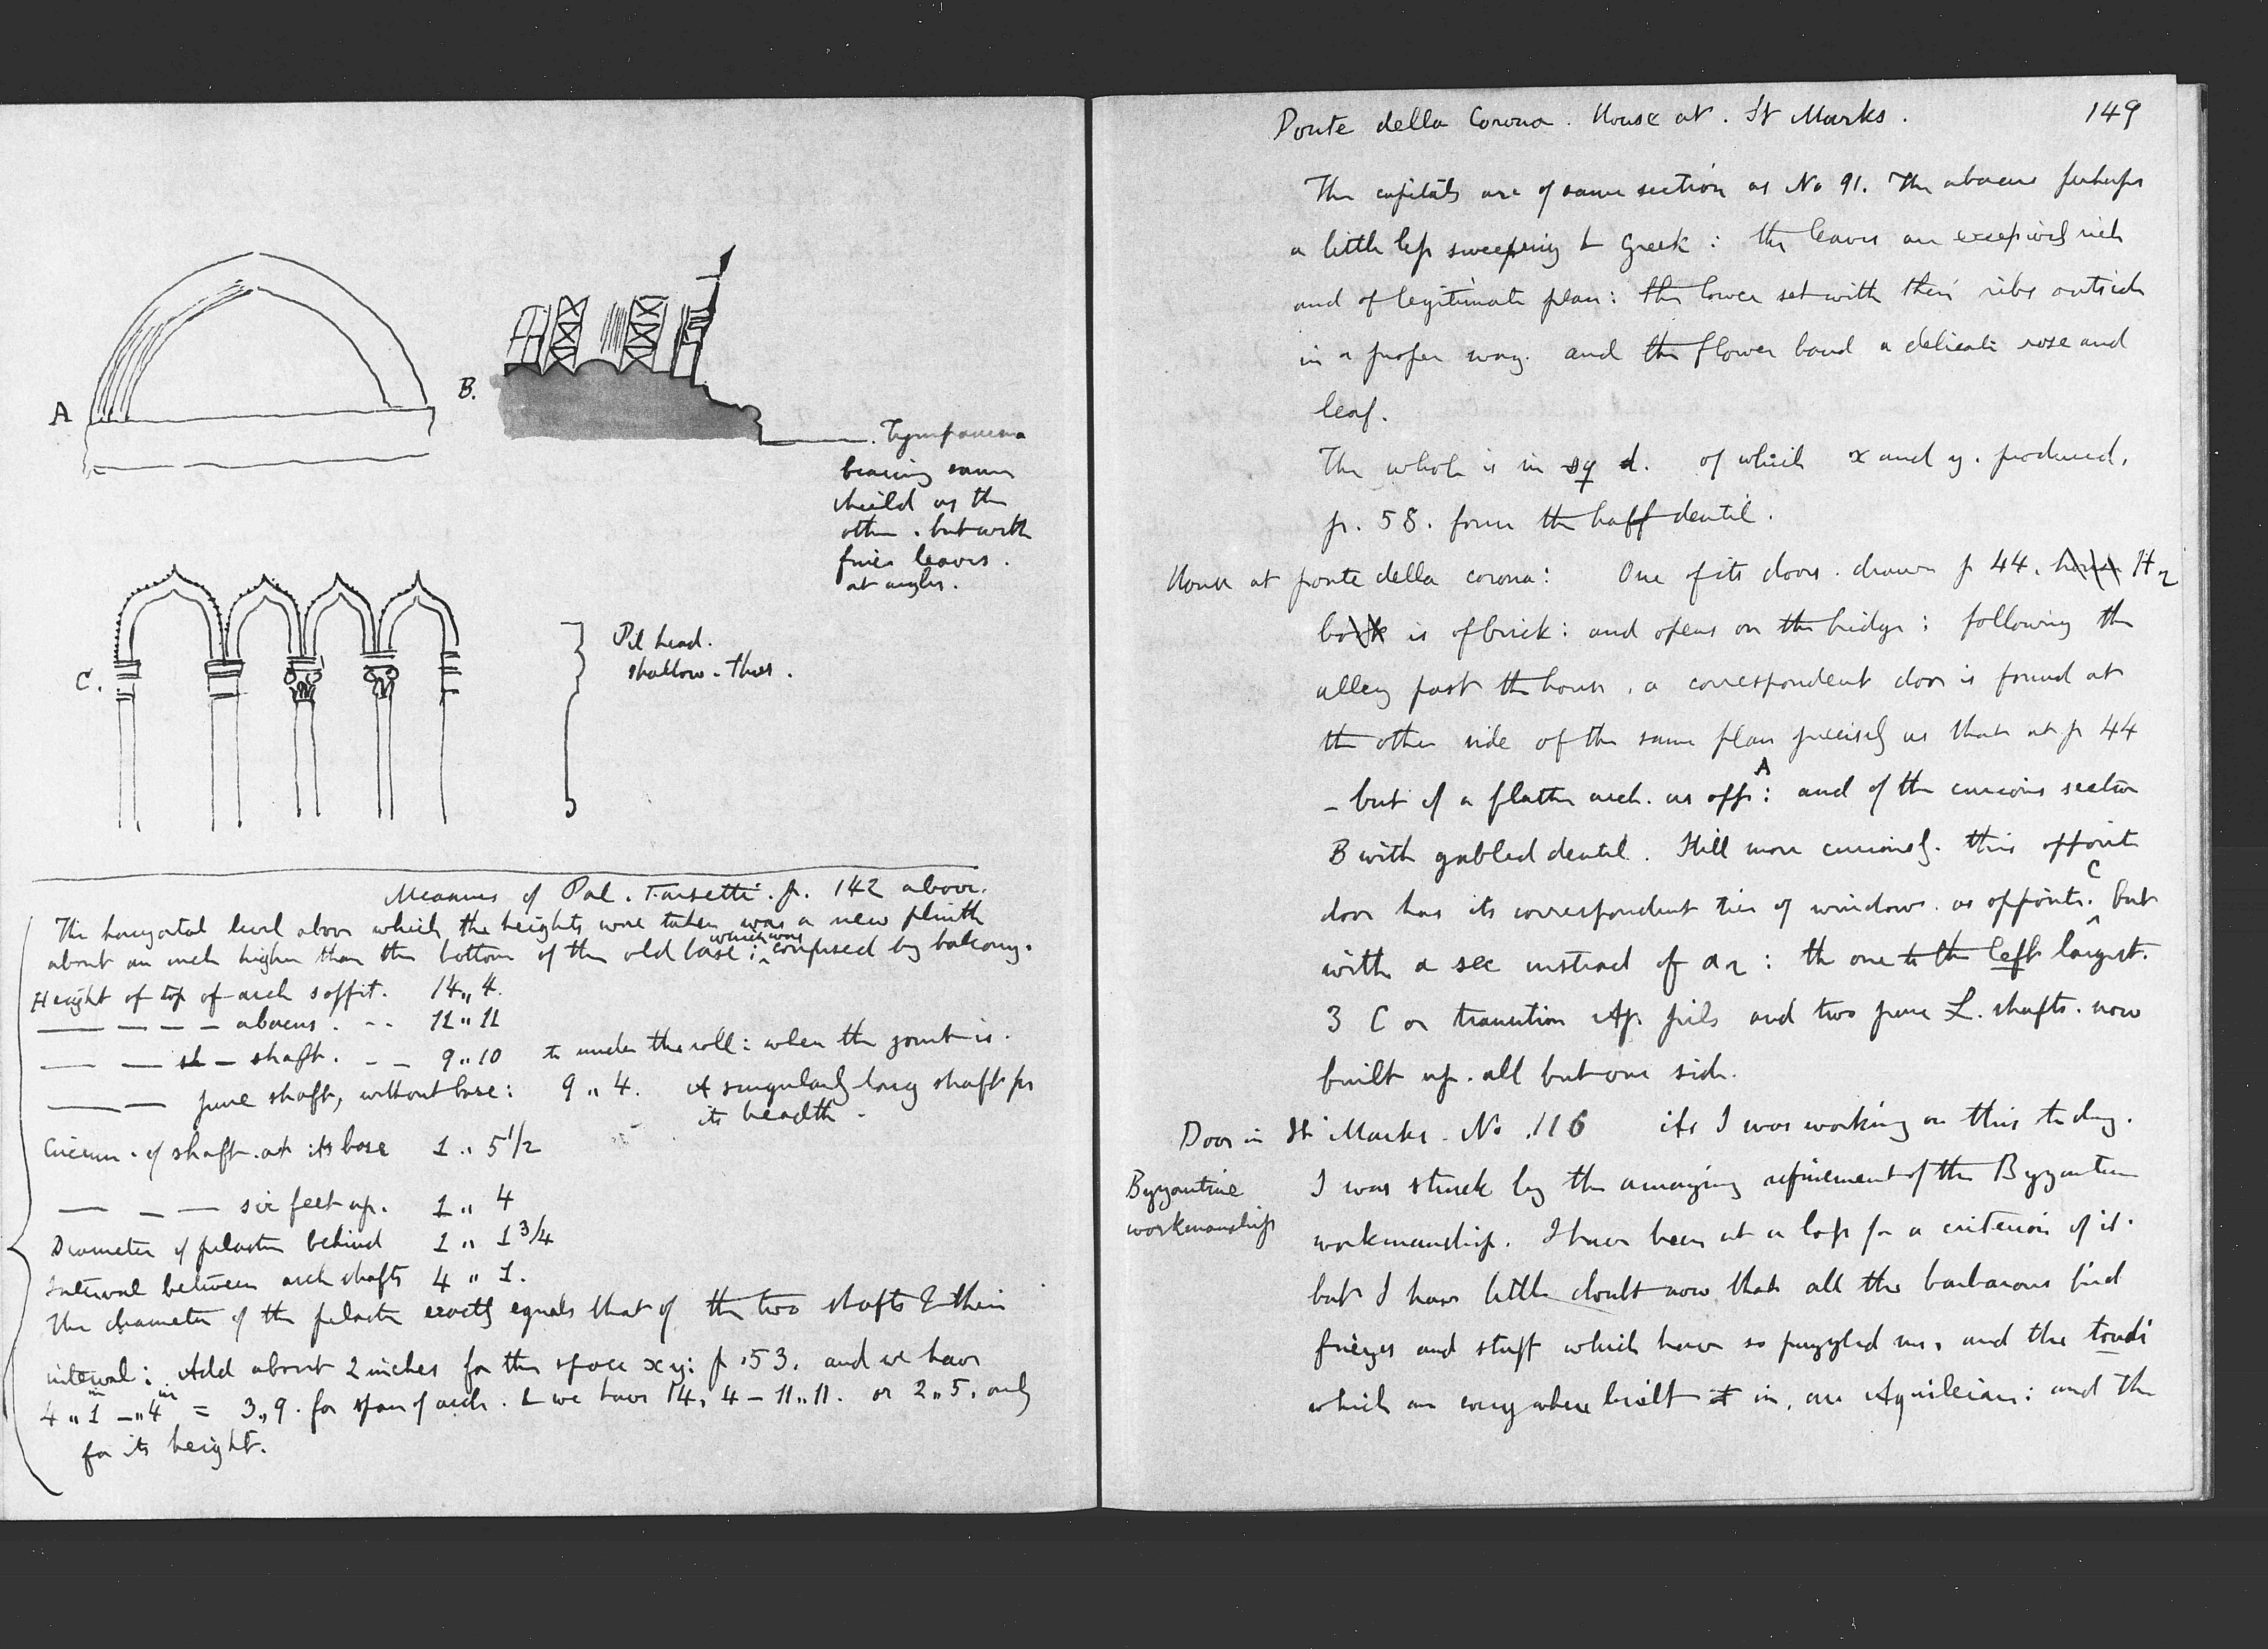 A
B.
Tympanum
bearing same
shield as the
other. but with
finer leaves.
at angles.
C.
Pil head.
shallow. thus.
Measures of Pal. Farsetti. p. 142 above.
The horizontal level above which the heights were taken was a new plinth
about an inch higher than the bottom of the old base: which was confused by balcony.
Height of top of arch soffit. 14,, 4.
— — — — abacus. - - 11 ,, 11
— — sh — shaft. — — 9 ,, 10 to under the roll: where the joint is.
— — pure shaft, without base: 9 ,, 4. A singularly long shaft for
its breadth -
Circum. of shaft. at its base 1 ,, 5 1/2
— — — six feet up. 1 ,, 4
Diameter of pilaster behind 1 ,, 1 3/4
Interval between arch shafts 4 ,, 1.
The diameter of the pilaster exactly equals that of the two shafts & their
interval: Add about 2 inches for the space x y: p. 53. and we have
4 ,, 1 in — ,, 4 in = 3 ,, 9. for span of arch. & we have 14, 4 — 11 ,, 11. or 2 ,, 5. only
for its height.
Ponte della Corona. House at. St Marks. 149
The capitals are of same section as No 91. The abacus perhaps
a little less sweeping & Greek: the leaves are exceedingly rich
and of legitimate plan: the lower set with their ribs outside
in a proper way. and the flower band a delicate rose and
leaf.
The whole is in sq d. of which x and y. produced,
p. 58. form the half dentil.
House at ponte della corona: One of its doors. drawn p 44. H 2
is of brick: and opens on the bridge: following the
alley past the house, a correspondent door is found at
the other side of the same plan precisely as that at p 44
– but of a flatter arch. as opp: A and of the curious section
B with gabled dentil. Still more curiously. this opposite
door has its correspondent tier of windows. as opposite. C but
with a sec instead of a 2: the one to the left largest.
3 C or transition Ap pils and two pure L. shafts. now
built up. all but one side.
Door in St Marks. No. 116 As I was working on this to day.
Byzantine
workmanship
I was struck by the amazing refinement of the Byzantine
workmanship. I have been at a loss for a criterion of it.
but I have little doubt now that all the barbarous bird
friezes and stuff which have so puzzled me, and the tondi
which are everywhere built in, are Aquileian: and the